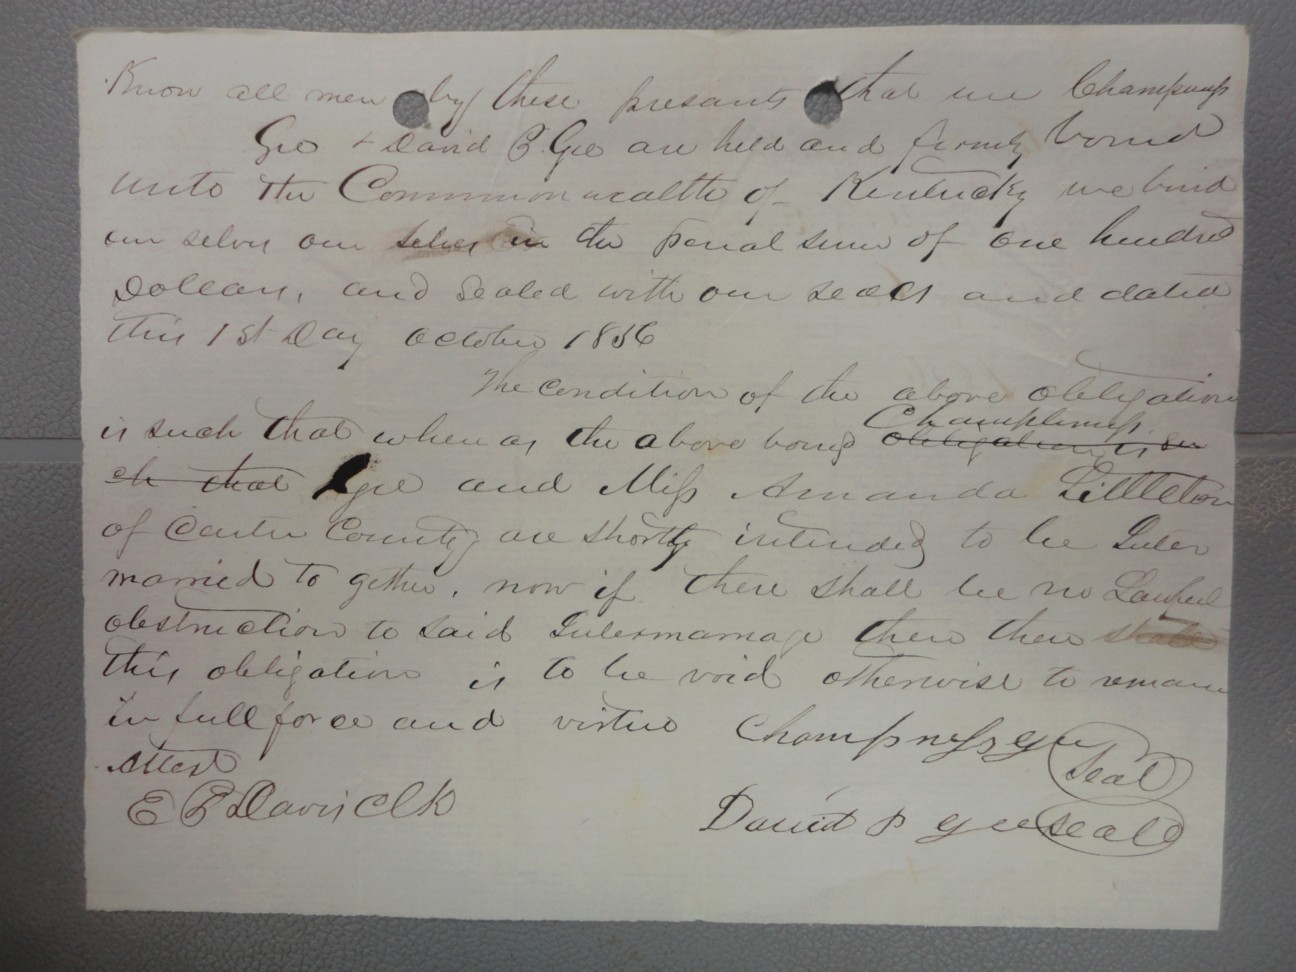 Know all men by these presants that we Champness
Gee + David P. Gee are held and firmly bound
unto the Commonwealth of Kentucky we bind
our selvs our selves in the penal sum of one hundred
Dollars, and sealed with our seals and dated
this 1st Day October 1856
The condition of the above obligation
is such that when as the above bound Champness
obligation is su
ch that Gee and Miss Amanda Littleton
of Carter County are shortly intended to be Inter
married to gether, now if there shall be no Lawful
obstruction to said Intermarriage then then shall
this obligation is to be void otherwise to remain
in full force and virtue Champness Gee Seal
Attest
E P Davis Clk David P Gee Seal